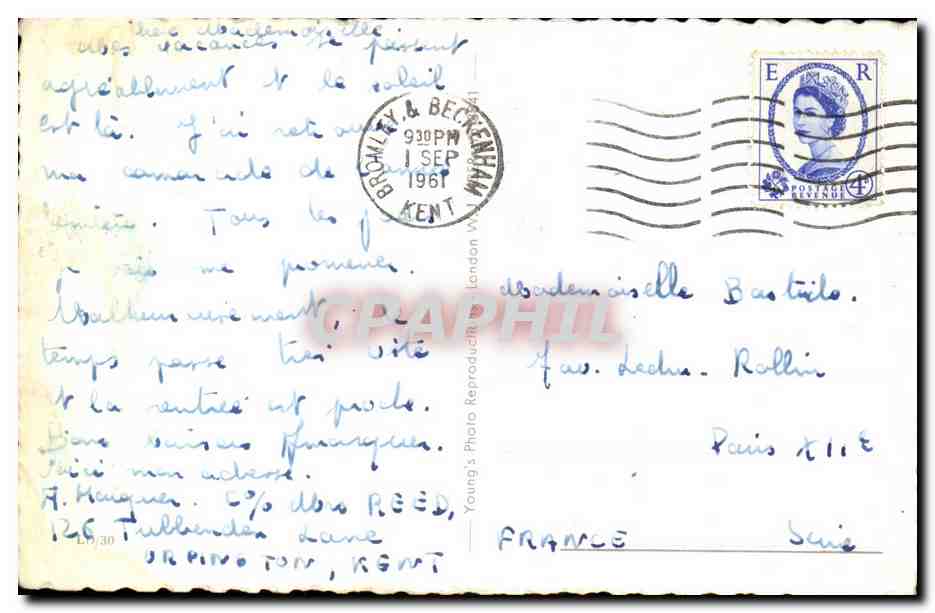 Chère Mademoiselle
Mes vacances se passent
agréablement et le soleil
est là. J'ai retrouvé
ma camarade de l'année
dernière. Tous les jours
je vais me promener.
Malheureusement, le
temps passe très vite
et la rentrée est proche.
Bons baisers
Voici mon adresse.
A. c/o Mrs REED,
126 Tubbenden Lane
ORPINGTON, KENT
LD/30
Young's Photo Reproductions London W.
BROMLEY & BECKENHAM
KENT
930 PM
1 SEP
1961
E R
POSTAGE
REVENUE
4D
Mademoiselle
7 av. Ledru-Rollin
Paris XIIE
FRANCE Seine
CPAPHIL